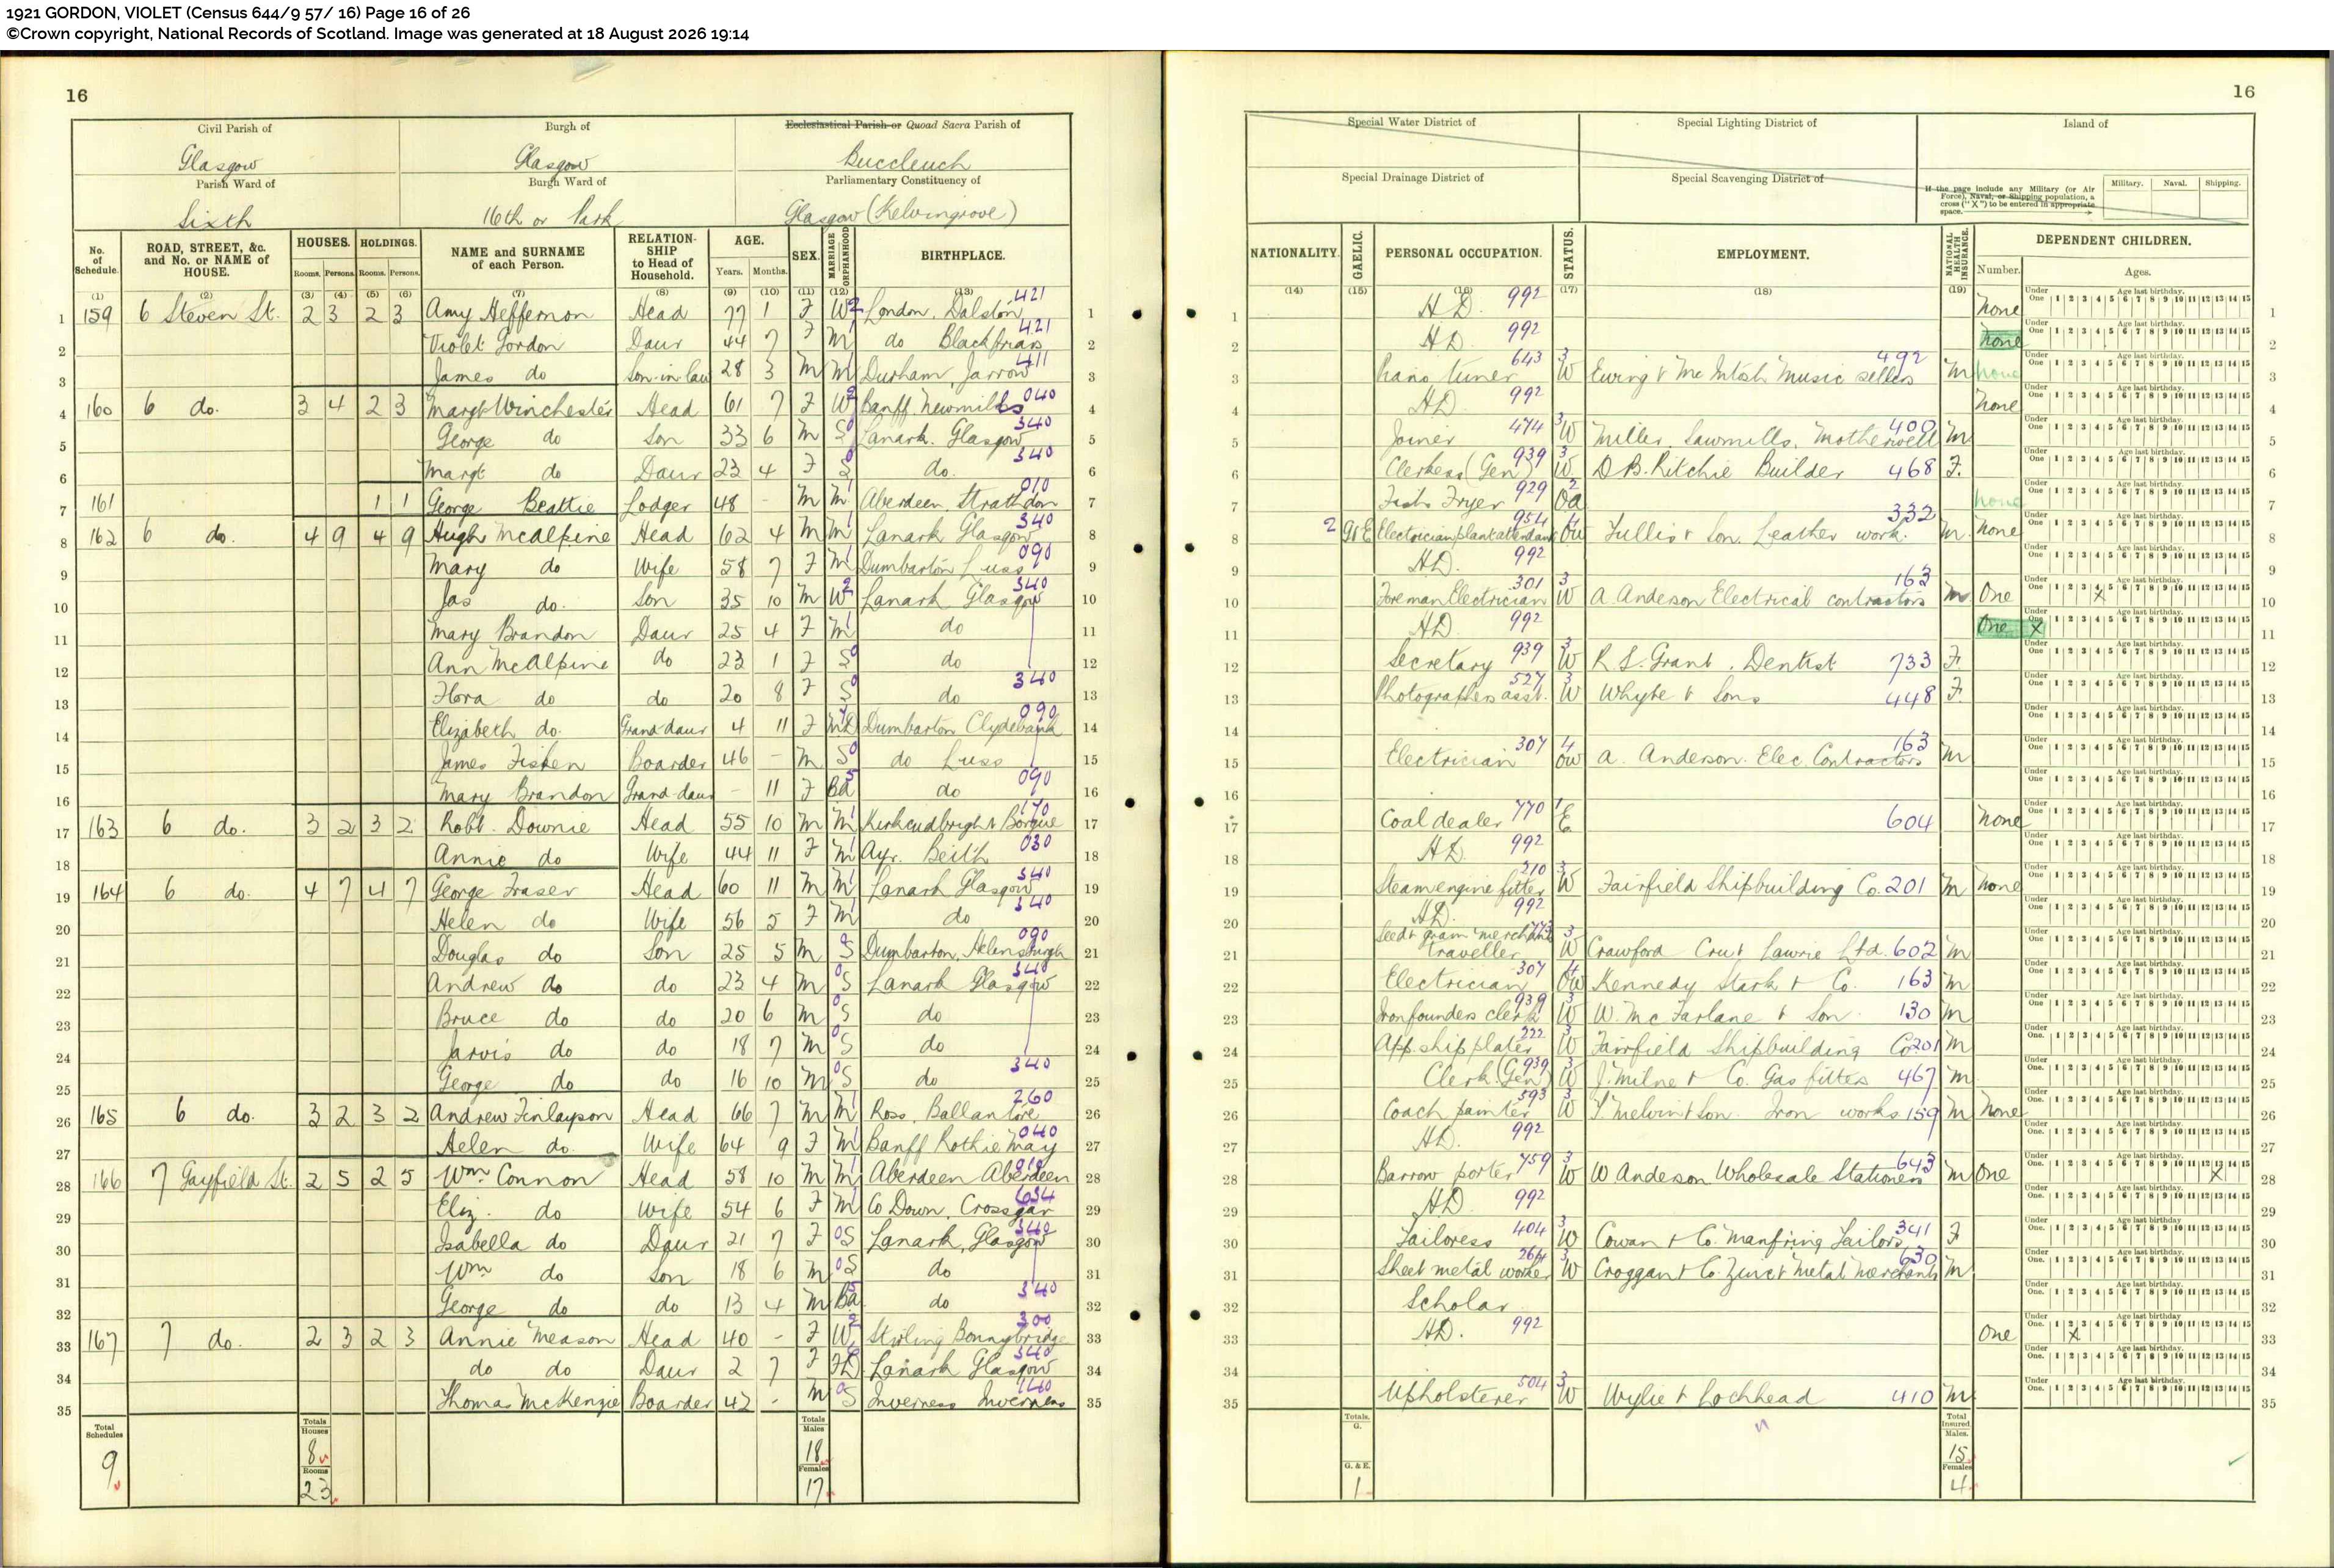 1921 GORDON, VIOLET (Census 644/9 57/ 16) Page 16 of 26
©Crown copyright, National Records of Scotland. Image was generated at 18 August 2026 19:14
16
Civil Parish of Burgh of Ecclesiastical Parish or Quoad Sacra Parish of
Glasgow Glasgow Buccleuch
Parish Ward of Burgh Ward of Parliamentary Constituency of
Sixth 16th or Park Glasgow (Kelvingrove)
No. of Schedule. ROAD, STREET, &c. and No. or NAME of HOUSE. HOUSES. HOLDINGS. NAME and SURNAME of each Person. RELATIONSHIP to Head of Household. AGE. SEX. MARRIAGE ORPHANHOOD BIRTHPLACE.
Rooms. Persons. Rooms. Persons. Years. Months.
(1) (2) (3) (4) (5) (6) (7) (8) (9) (10) (11) (12) (13)
1 159 6 Steven St. 2 3 2 3 Amy Heffernon Head 77 1 F W 2 London, Dalston 421 1
2 Violet Gordon Daur 44 7 F M 1 do Blackfriars 421 2
3 James do Son-in-law 28 3 M M 1 Durham, Jarrow 411 3
4 160 6 do. 3 4 2 3 Margt Winchester Head 61 7 F W 2 Banff Newmills 040 4
5 George do Son 33 6 M S 0 Lanark. Glasgow 340 5
6 Margt do Daur 23 4 F S 0 do. 340 6
7 161 1 1 George Beattie Lodger 48 - M M 1 Aberdeen, Strathdon 010 7
8 162 6 do. 4 9 4 9 Hugh McAlpine Head 62 4 M M 1 Lanark Glasgow 340 8
9 Mary do Wife 58 7 F M 1 Dumbarton Luss 090 9
10 Jas do. Son 35 10 M W 2 Lanark Glasgow 340 10
11 Mary Brandon Daur 25 4 F M 1 do 11
12 Ann McAlpine do 23 1 F S 0 do 12
13 Flora do do 20 8 F S 0 do 340 13
14 Elizabeth do. Grand-daur 4 11 F MD Dumbarton Clydebank 090 14
15 James Fisken Boarder 46 - M S 0 do Luss 15
16 Mary Brandon Grand-daur - 11 F BA 5 do 090 16
17 163 6 do. 3 2 3 2 Robt. Downie Head 55 10 M M 1 Kirkcudbright Borgue 170 17
18 Annie do Wife 44 11 F M 1 Ayr. Beith 030 18
19 164 6 do. 4 7 4 7 George Fraser Head 60 11 M M 1 Lanark Glasgow 340 19
20 Helen do Wife 56 5 F M 1 do 340 20
21 Douglas do Son 25 5 M S 0 Dumbarton, Helensburgh 090 21
22 Andrew do do 23 4 M S 0 Lanark Glasgow 340 22
23 Bruce do do 20 6 M S 0 do 23
24 Jarvis do do 18 7 M S 0 do 24
25 George do do 16 10 M S 0 do 340 25
26 165 6 do. 3 2 3 2 Andrew Finlayson Head 66 7 M M 1 Ross, Ballantore 260 26
27 Helen do. Wife 64 9 F M 1 Banff Rothiemay 040 27
28 166 7 Gayfield St. 2 5 2 5 Wm Connon Head 58 10 M M 1 Aberdeen Aberdeen 010 28
29 Eliz. do Wife 54 6 F M 1 Co Down, Crossgar 634 29
30 Isabella do Daur 21 7 F 0 S Lanark, Glasgow 340 30
31 Wm do Son 18 6 M 0 S do 31
32 George do do 13 4 M BA 5 do 340 32
33 167 7 do. 2 3 2 3 Annie Meason Head 40 - F W 2 Stirling Bonnybridge 300 33
34 do do Daur 2 7 F FD Lanark Glasgow 340 34
35 Thomas McKenzie Boarder 42 - M 0 S Inverness Inverness 140 35
Total Schedules Totals Houses Totals Males
9 8 18
Rooms Females
23 17
16
Special Water District of Special Lighting District of Island of
Special Drainage District of Special Scavenging District of
If the page include any Military (or Air Force), Naval, or Shipping population, a cross ("X") to be entered in appropriate space. Military. Naval. Shipping.
NATIONALITY. GAELIC. PERSONAL OCCUPATION. STATUS. EMPLOYMENT. NATIONAL HEALTH INSURANCE. DEPENDENT CHILDREN.
Number. Ages.
(14) (15) (16) (17) (18) (19)
Under One Age last birthday. 1 2 3 4 5 6 7 8 9 10 11 12 13 14 15
1 H.D. 992 None 1
2 H.D. 992 None 2
3 Piano tuner 643 3 W Ewing & McIntosh Music sellers 492 M none 3
4 H.D. 992 None 4
5 Joiner 474 3 W Miller, Sawmills, Motherwell 400 M 5
6 Clerkess (Gen) 939 3 W D B. Ritchie Builder 468 F. 6
7 Fish Fryer 929 2 OA none 7
8 2 G&E Electrician plant attendant 954 4 OW Tullis & Son, Leather work. 332 M. None 8
9 H.D. 992 9
10 Foreman Electrician 301 3 W A. Anderson Electrical contractors 163 M One X 10
11 H.D. 992 One X 11
12 Secretary 939 3 W R. S. Grant. Dentist 733 F. 12
13 Photographers asst. 527 3 W Whyte & Sons 448 F. 13
14 14
15 Electrician 307 4 OW A. Anderson. Elec. Contractors 163 M 15
16 16
17 Coal dealer 770 1 E 604 None 17
18 H.D. 992 18
19 Steam engine fitter 210 3 W Fairfield Shipbuilding Co. 201 M None 19
20 H.D. 992 20
21 Seed & grain merchant traveller 773 3 W Crawford Lawrie Ltd. 602 M 21
22 Electrician 307 4 OW Kennedy Stark & Co. 163 M 22
23 Ironfounders clerk 939 3 W W. McFarlane & Son 130 M 23
24 App. ship plater 222 3 W Fairfield Shipbuilding Co 201 M 24
25 Clerk (Gen) 939 3 W J. Milne & Co. Gas fitter 467 M 25
26 Coach painter 593 3 W Melvin & Son. Iron works 159 M None 26
27 H.D. 992 27
28 Barrow porter 759 3 W W Anderson Wholesale Stationers 643 M One X 28
29 H.D. 992 29
30 Tailoress 404 3 W Cowan & Co. Manfring Tailors 341 F 30
31 Sheet metal worker 264 3 W Croggan & Co. Zinc & Metal Merchants 630 M 31
32 Scholar 32
33 H.D. 992 One X 33
34 34
35 Upholsterer 504 3 W Wylie & Lochhead 410 M 35
Totals. G. Total Insured. Males.
15
G. & E. Females
1 4